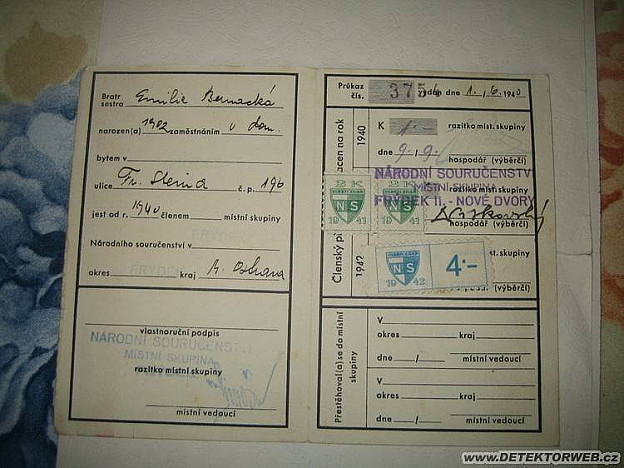 Bratr
sestra Emilie Bernacká
narozen(a) 1902 zaměstnáním v dom.
bytem v
ulice Fr. Sleina č. p. 196
jest od r. 1940 členem místní skupiny
FRYDEK
Národního souručenství v
okres FRYDEK kraj M. Ostrava
vlastnoruční podpis
NÁRODNÍ SOURUČENSTVÍ
MÍSTNÍ SKUPINA
razítko místní skupiny
místní vedoucí
Průkaz
čís. 375 dne 1./6. 1940
Členský
1940
K 1.- razítko míst. skupiny
dne 9./9. hospodář (výběrčí)
NÁRODNÍ SOURUČENSTVÍ
MÍSTNÍ SKUPINA
FRÝDEK II. - NOVÉ DVORY
razítko míst. skupiny
hospodář (výběrčí)
2K
NS
1941
2K
NS
1941
míst. skupiny
(výběrčí)
NS
1942
4.-
Přestěhoval(a) se do místní
skupiny
V
okres kraj
dne / místní vedoucí
V
okres kraj
dne / místní vedoucí
www.DETEKTORWEB.cz